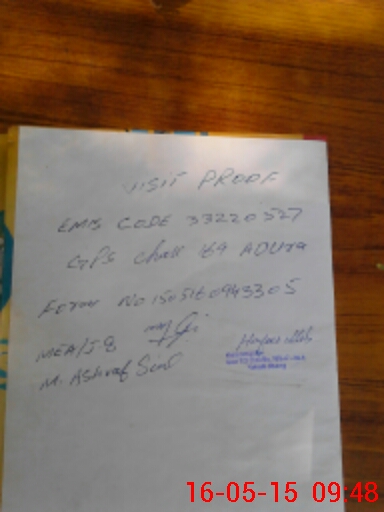 VISIT PROOF
EMIS CODE 33220327
GPS Chak 169 ADUra
Form No 1505160943305
MEA/J-8
M. Ashraf Sial
16-05-15 09:48